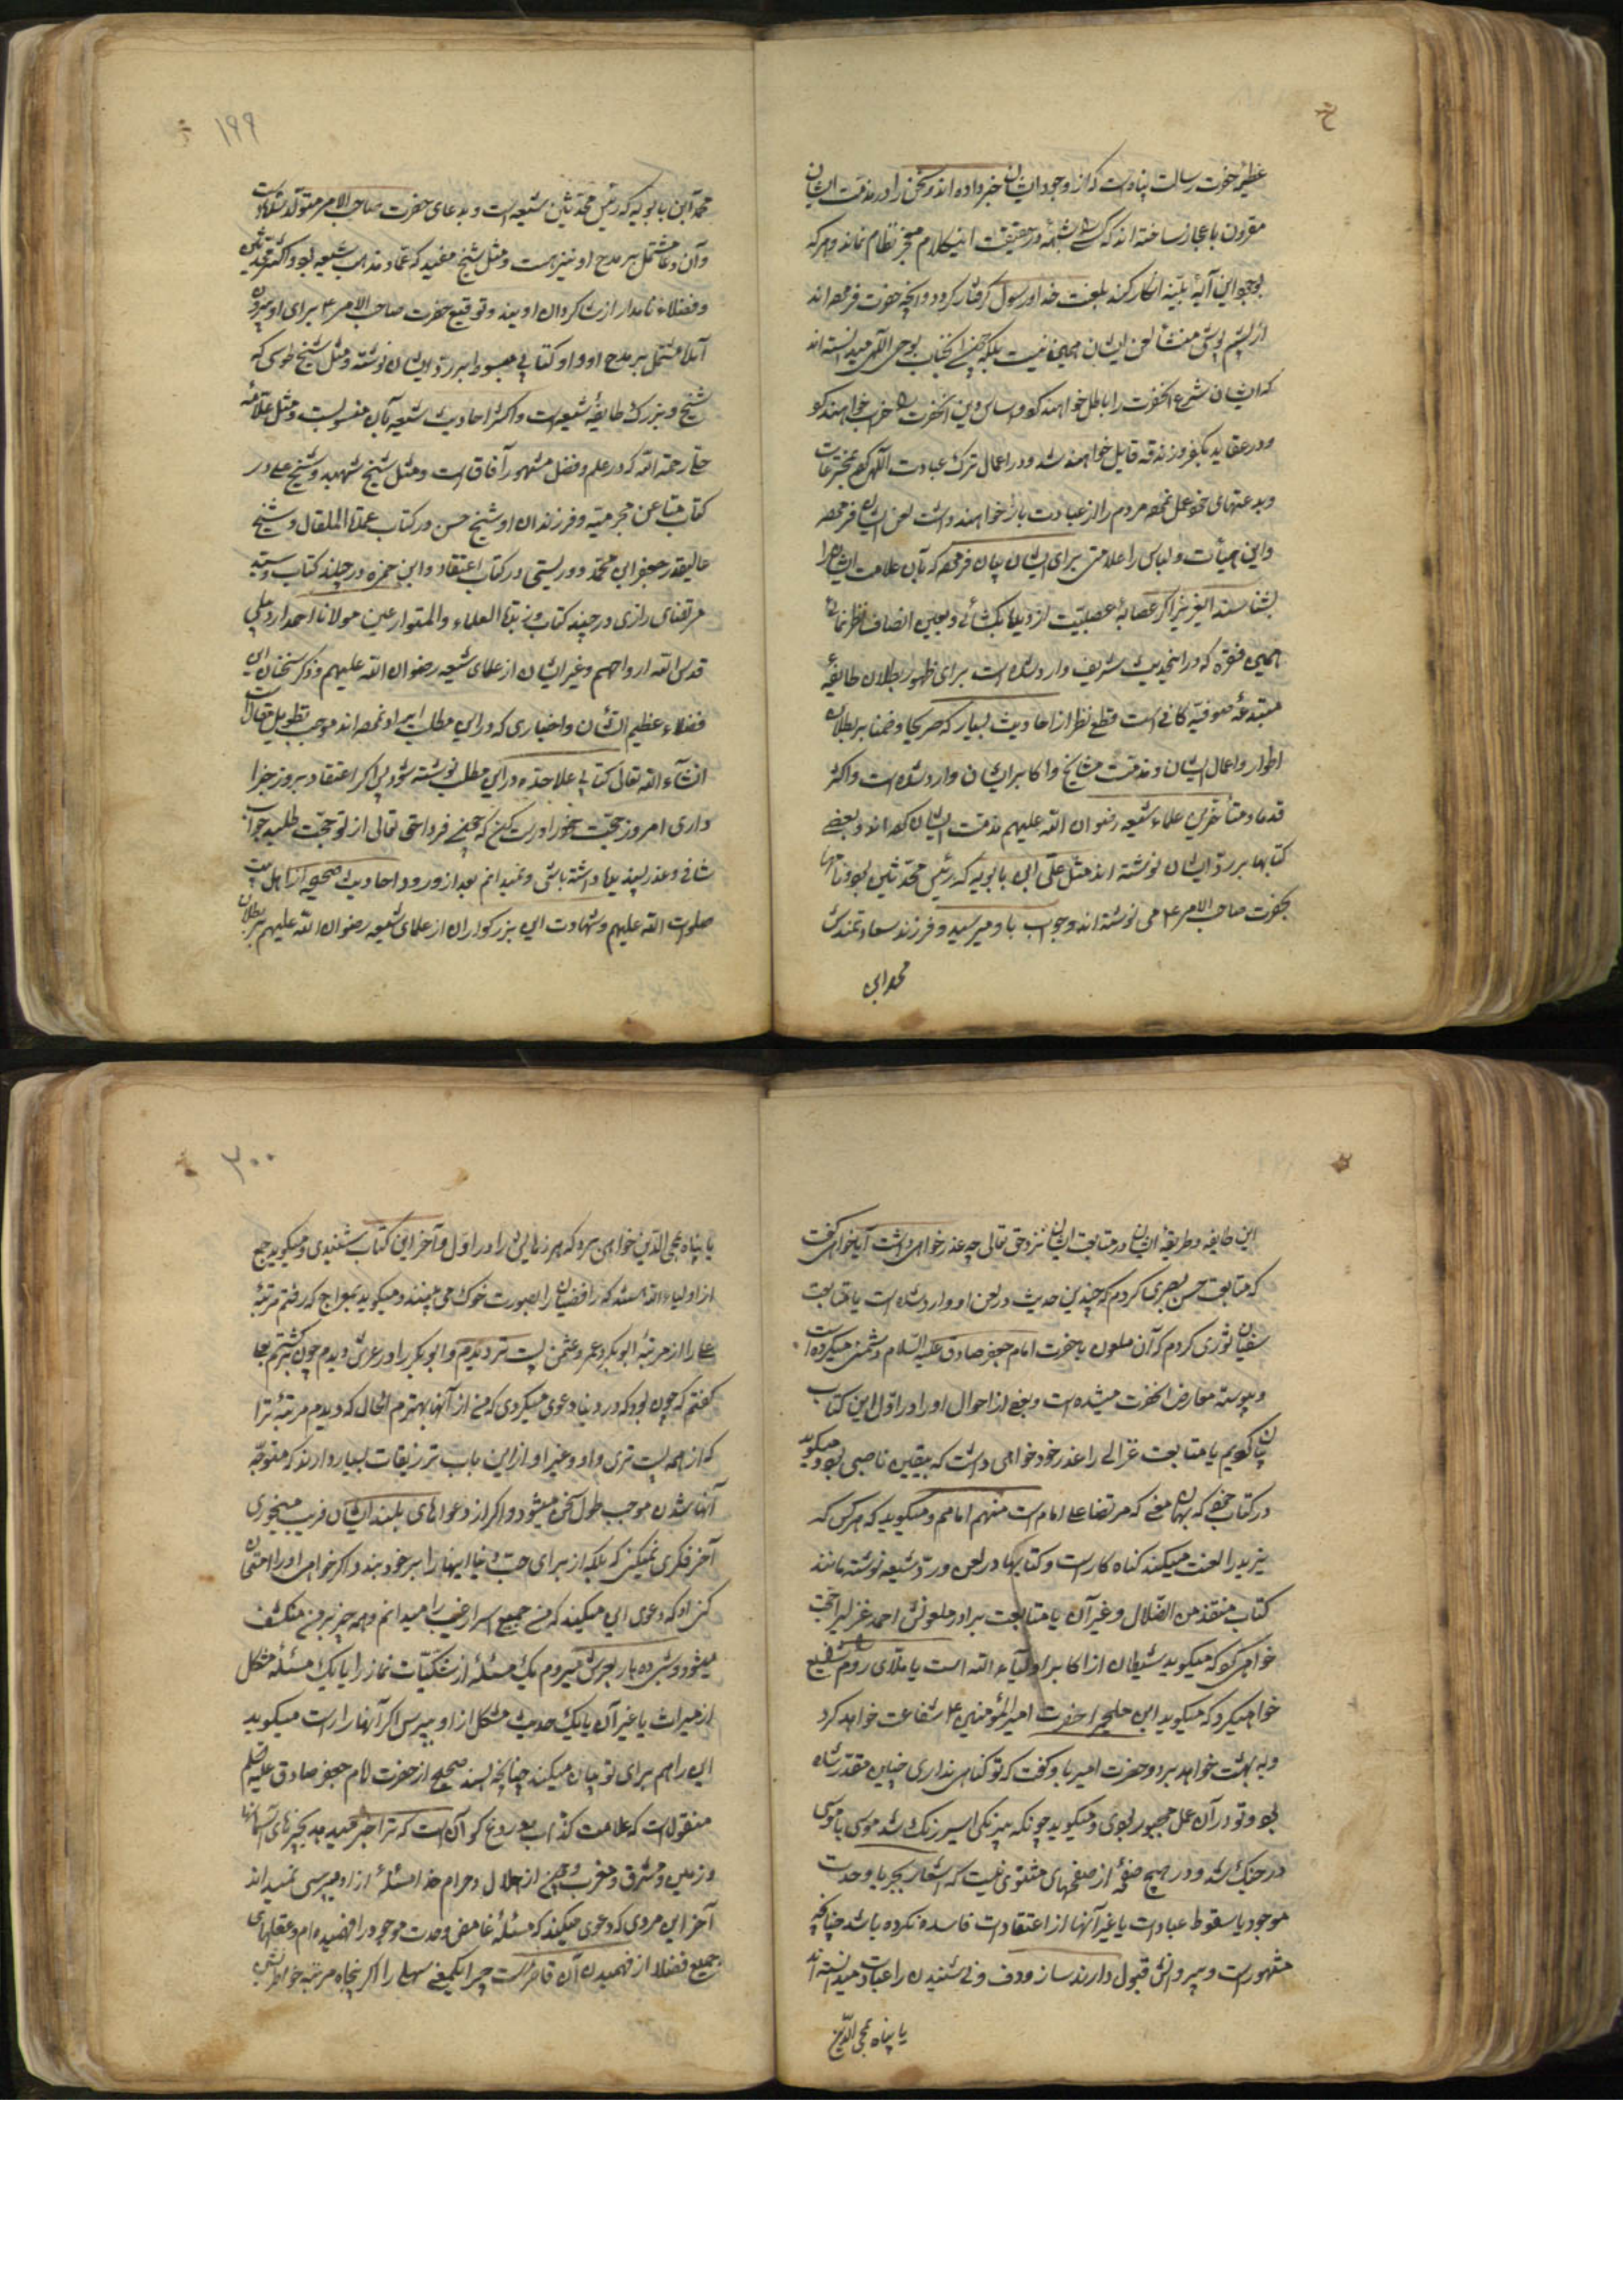 عظیم حضرت رسالت پناهست که از وجود ایشان خبر داده اند و سخن را در مذمت ایشان
مقرون باعجاز ساخته اند که کسی را شبهه در حقیقت اینکلام معجز نظام نماند و هر که
بوجود این آیه بینه انکار کند بلعنت خدا و رسول گرفتار گردد و آنچه حضرت فرموده اند
از پشم پوشی منشأ لعن ایشان همین نیست بلکه چون آنجناب بوحی الهی میدانسته اند
که ایشان شرع آنحضرت را باطل خواهند کرد و اساس دین آنحضرت را خراب خواهند کرد
و در عقاید بکفر و زندقه قایل خواهند شد و در اعمال ترک عبادت الهی کرده بمخترعات
و بدعتهای خود عمل نموده مردم را از عبادت باز خواهند داشت لعن ایشان فرموده
و این هیأت و لباس را علامتی برای ایشان بیان فرموده که بآن علامت ایشان را
بشناسند ای عزیز اگر عصابهٔ عصبیت از دیده بگشائی و بعین انصاف نظر نمائی
همین فقره که در اینحدیث شریف وارد شده است برای ظهور بطلان طایفهٔ
مبتدعهٔ صوفیه کافی است قطع نظر از احادیث بسیار که صریحا و ضمنا بر بطلان
اطوار و اعمال ایشان و مذمت مشایخ و اکابر ایشان وارد شده است و اکثر
قدما و متأخرین علماء شیعه رضوان الله علیهم مذمت ایشان کرده اند و بعضی
کتابها بر رد ایشان نوشته اند مثل علی ابن بابویه که رئیس محدثین بود و نامها
بحضرت صاحب الامر ع می نوشته اند و جواب باو میرسید و فرزند سعادتمندش
محمد ابن
۱۹۹
محمد ابن بابویه که رئیس محدثین شیعه است و بدعای حضرت صاحب الامر متولد شده است
و آن دعا مشتمل بر مدح او نیز هست و مثل شیخ مفید که عماد مذهب شیعه بود و اکثر محدثین
و فضلاء نامدار از شاگردان اویند و توقیع حضرت صاحب الامر ع برای او بیرون
آمد مشتمل بر مدح او و او کتابی مبسوط بر رد ایشان نوشته و مثل شیخ طوسی که
شیخ و بزرگ طایفهٔ شیعه است و اکثر احادیث شیعه بآن منسوبست و مثل علامه
حلی رحمه الله که در علم و فضل مشهور آفاق است و مثل شیخ شهید و شیخ علی در
کتاب مطاعن مجرمیه و فرزند ان او شیخ حسن در کتاب عمدة المقال و شیخ
عالیقدر جعفر ابن محمد دوریستی در کتاب اعتقاد و ابن حمزه در چند کتاب و سید
مرتضای رازی در چند کتاب و زبدة العلماء و المتورعین مولانا احمد اردبیلی
قدس الله ارواحهم و غیر ایشان از علمای شیعه رضوان الله علیهم و ذکر سخنان این
فضلاء عظیم الشأن و اخباری که در این مطلب ایراد نموده اند موجب تطویل مقال است
انشاء الله تعالی کتابی علاحده در این مطلب نوشته شود پس اگر اعتقاد بروز جزا
داری امروز حجت خود را درست کن که چون فردا حق تعالی از تو حجت طلبد جواب
شافی و عذر پسندیده داشته باشی و نمیدانم بعد از ورود احادیث صحیحه از اهل بیت
صلوات الله علیهم و شهادت این بزرگواران از علمای شیعه رضوان الله علیهم بر بطلان
این طایفه و طریقهٔ ایشان در متابعت ایشان نزد حق تعالی چه عذر خواهی داشت آیا خواهی گفت
که متابعت حسن بصری کردم که چندین حدیث در لعن او وارد شده است یا متابعت
سفیان ثوری کردم که آن ملعون با حضرت امام جعفر صادق علیه السلام دشمنی میکرده است
و پیوسته معارض آنحضرت میشده است و بعضی از احوال او را در اول این کتاب
بیان کردیم یا متابعت غزالی را عذر خود خواهی داشت که بیقین ناصبی بود و میگوید
در کتاب خود که بهمان معنی که مرتضا علی امام است منهم امامم و میگوید که هر کس که
یزید را لعنت میکند گناه کار است و کتابها در لعن و رد شیعه نوشته مانند
کتاب منقذ من الضلال و غیر آن یا متابعت برادر ملعونش احمد غزالی را حجت
خواهی کرد که میگوید شیطان از اکابر اولیاء الله است یا ملای روم را شفیع
خواهی کرد که میگوید ابن ملجم را حضرت امیر المؤمنین ع شفاعت خواهد کرد
و به بهشت خواهد برد و حضرت امیر باو گفت که تو گناهی نداری چنین مقدر شده
بود و تو در آن عمل مجبور بودی و میگوید چونکه بیرنگی اسیر رنگ شد موسی با موسی
در جنگ شد و در هیچ صفحهٔ از صفحهای مثنوی نیست که اشعار بجبر یا وحدت
موجود یا سقوط عبادات یا غیر آنها از اعتقادات فاسده نکرده باشد چنانچه
مشهور است و پیروانش قبول دارند ساز و دف و نی شنیدن را عبادت میدانسته اند
یا پناه بمحی الدین
۲۰۰
یا پناه بمحی الدین خواهی برد که هرزهایش را در اول و آخر این کتاب شنیدی و میگوید جمعی
از اولیاء الله هستند که رافضیان را بصورت خوک می بینند و میگوید بمعراج که رفتم مرتبهٔ
علی را از مرتبهٔ ابوبکر و عمر و عثمان پست تر دیدم و ابوبکر را در عرش دیدم چون برگشتم بعلی
گفتم که چون بود که در دنیا دعوی میکردی که من از آنها بهترم الحال که دیدم مرتبهٔ ترا
که از همه پست تری و او و غیر او از این باب تزریقات بسیار دارند که متوجه
آنها شدن موجب طول سخن میشود و اگر از دعواهای بلند ایشان فریب میخوری
آخر فکری نمیکنی که بلکه از برای حب دنیا اینها را بر خود بندد اگر خواهی او را امتحان
کن او که دعوی این میکند که من جمیع اسرار غیب را میدانم و همه چیز بر من منکشف
میشود و شبی ده بار بعرش میروم یک مسئله از شکیات نماز را یا یک مسئله مشکل
از میراث یا غیر آن یا یک حدیث مشکل از او بپرس اگر آنها را راست میگوید
این را هم برای تو بیان میکند چنانچه بسند صحیح از حضرت امام جعفر صادق علیه السلام
منقولست که علامت کذاب و دروغ گو آن است که ترا خبر میدهد بچیزهای آسمانها
و زمین و مشرق و مغرب و چون از حلال و حرام خدا مسئلهٔ از او میپرسی نمیداند
آخر این مردی که دعوی میکند که مسئلهٔ غامض وحدت موجود را فهمیده ام و عقلهای
جمیع فضلا از فهمیدن آن قاصر است چرا یکمعنی سهلی را اگر پنجاه مرتبه خاطر نشین